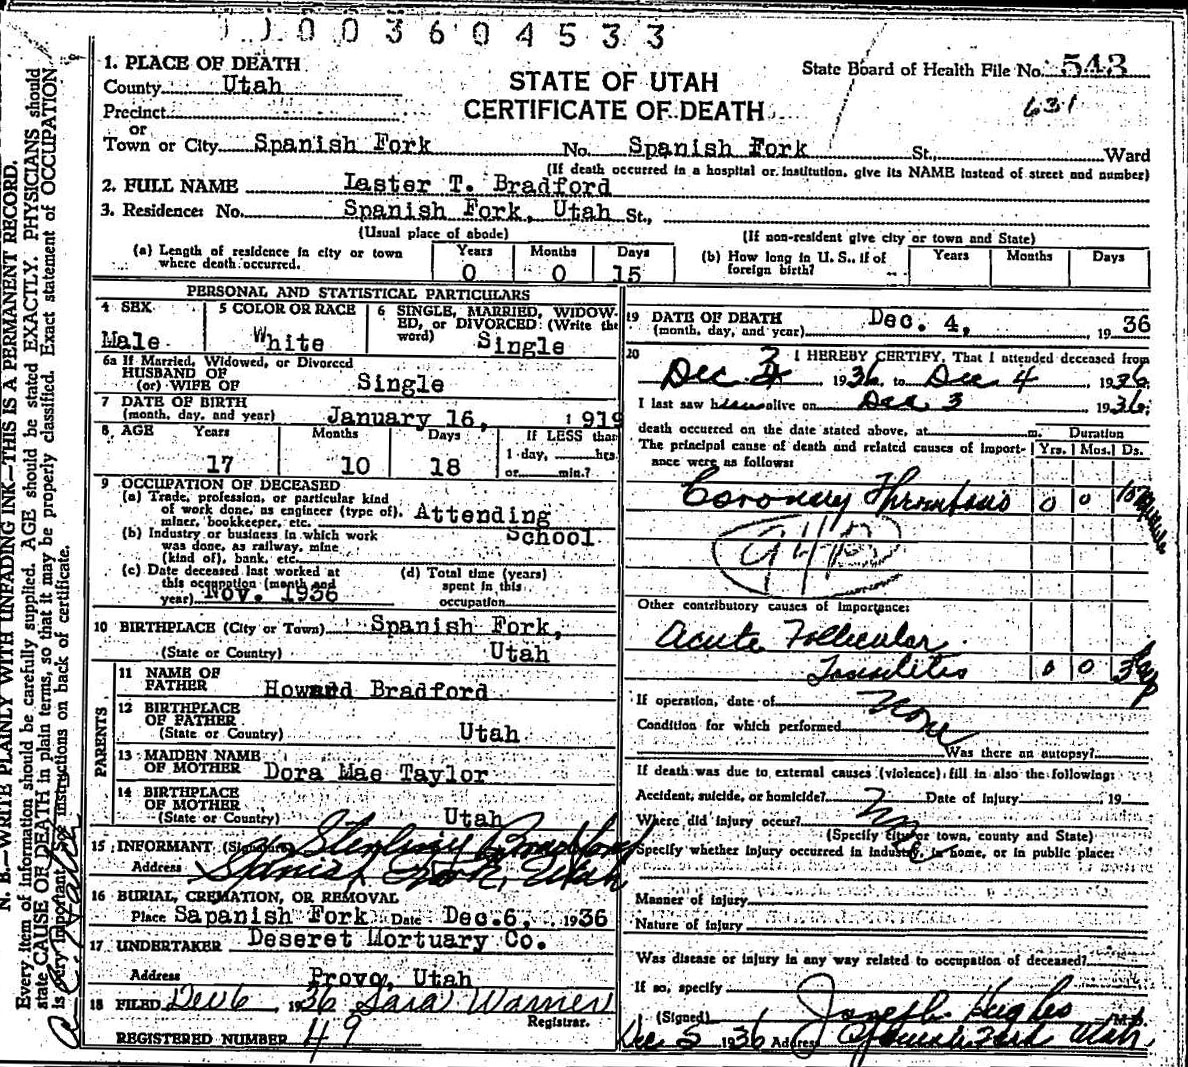 1003604533
State Board of Health File No. 543
631
STATE OF UTAH
CERTIFICATE OF DEATH
1. PLACE OF DEATH
County Utah
Precinct
or
Town or City Spanish Fork No. Spanish Fork St., Ward
(If death occurred in a hospital or institution, give its NAME instead of street and number)
2. FULL NAME Laster T. Bradford
3. Residence: No. Spanish Fork, Utah St.,
(Usual place of abode) (If non-resident give city or town and State)
(a) Length of residence in city or town where death occurred. Years 0 Months 0 Days 15
(b) How long in U. S., if of foreign birth? Years Months Days
PERSONAL AND STATISTICAL PARTICULARS
4 SEX Male
5 COLOR OR RACE White
6 SINGLE, MARRIED, WIDOWED, or DIVORCED: (Write the word) Single
6a If Married, Widowed, or Divorced
HUSBAND OF
(or) WIFE OF Single
7 DATE OF BIRTH
(month, day, and year) January 16, 1919
8 AGE Years 17 Months 10 Days 18 If LESS than 1 day, hrs. or min.?
9 OCCUPATION OF DECEASED
(a) Trade, profession, or particular kind
of work done, as engineer (type of),
miner, bookkeeper, etc. Attending School
(b) Industry or business in which work
was done, as railway, mine
(kind of), bank, etc.
(c) Date deceased last worked at
this occupation (month and
year) Nov. 1936
(d) Total time (years)
spent in this
occupation
10 BIRTHPLACE (City or Town) Spanish Fork,
(State or Country) Utah
PARENTS
11 NAME OF FATHER Howard Bradford
12 BIRTHPLACE OF FATHER
(State or Country) Utah
13 MAIDEN NAME OF MOTHER Dora Mae Taylor
14 BIRTHPLACE OF MOTHER
(State or Country) Utah
15 INFORMANT (Signature) Sterling
Address Spanish Fork, Utah
16 BURIAL, CREMATION, OR REMOVAL
Place Sapanish Fork Date Dec.6, 1936
17 UNDERTAKER Deseret Mortuary Co.
Address Provo, Utah
18 FILED Dec 6, 1936 Sara Warner
Registrar.
REGISTERED NUMBER 49
19 DATE OF DEATH
(month, day, and year) Dec. 4, 1936
20 I HEREBY CERTIFY, That I attended deceased from
Dec 3 1936 to Dec 4, 1936
I last saw him alive on Dec 3 1936;
death occurred on the date stated above, at m. Duration
The principal cause of death and related causes of importance were as follows: Yrs. Mos. Ds.
Coronary Thrombosis 0 0
Other contributory causes of importance:
Acute Follicular
Tonsilitis 0 0 3 days
If operation, date of None
Condition for which performed
Was there an autopsy?
If death was due to external causes (violence) fill in also the following:
Accident, suicide, or homicide? Date of injury 19
Where did injury occur?
(Specify city or town, county and State)
Specify whether injury occurred in industry, in home, or in public place:
Manner of injury
Nature of injury
Was disease or injury in any way related to occupation of deceased?
If so, specify
(Signed) Joseph Hughes M.D.
Dec 5 1936 Address Spanish Fork Utah
N. B.—WRITE PLAINLY WITH UNFADING INK—THIS IS A PERMANENT RECORD.
Every item of information should be carefully supplied. AGE should be stated EXACTLY. PHYSICIANS should
state CAUSE OF DEATH in plain terms, so that it may be properly classified. Exact statement of OCCUPATION
is very important. See instructions on back of certificate.